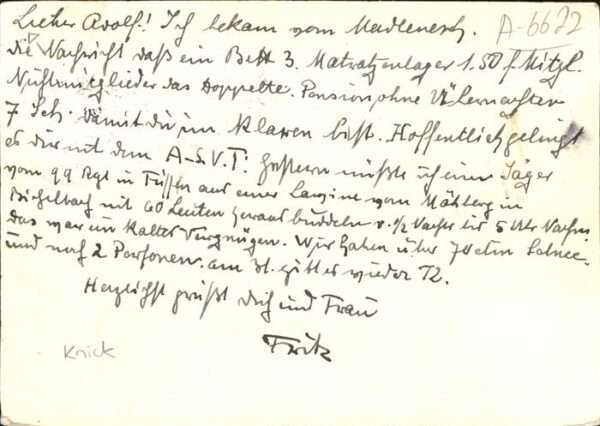 Lieber Adolf! Ich bekam vom Madlenerh. A-6622
die Nachricht daß ein Bett 3. Matratzenlager 1.50 f. Mitgl.
Nichtmitglieder das Doppelte. Pension ohne Übernachten
7 Sch. damit du im klaren bist. Hoffentlich gelingt
es dir mit dem A-S.V.T. Gestern mußte ich einen Jäger
vom 99 Rgt in Füssen aus einer Lawine vom in
Bichelbach mit 60 Leuten heraus buddeln v. 1/2 bis 5 Uhr
das war ein kaltes Vergnügen. Wir haben über 70 ctm Schnee
und noch 2 Personen. am 31. gibt es wieder
Herzlichst grüßt Dich und Frau
Fritz
Knick